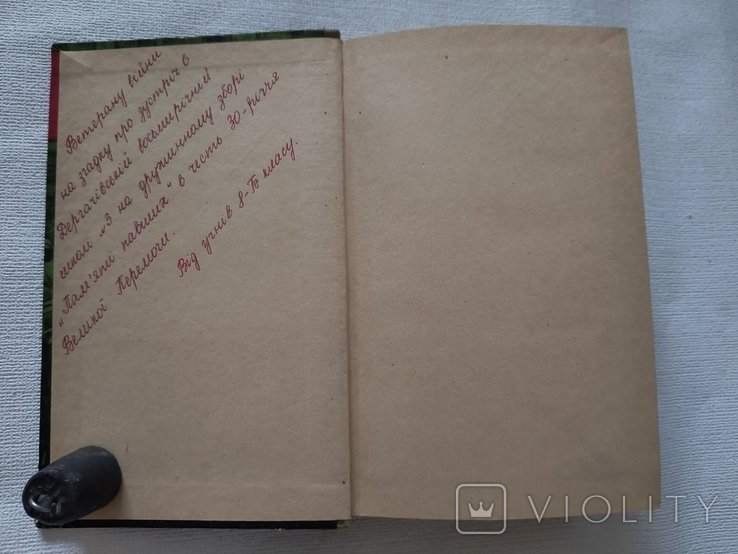 Ветерану війни
на згадку про зустріч в
Дергачівській восьмирічній
школі №3 на дружинному зборі
"Пам'яти павших" в честь 30-риччя
Великої Перемоги.
Від учнів 8-Б класу.
VIOLITY